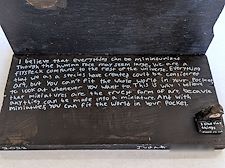 I believe that everything can be miniaturized
Though the human race may seem large, we are a
flyspeck compared to the rest of the universe. Everything
that we as a species have created could be considered
art, but you can't fit the whole world in your pocket
to look at whenever you want to. This is why I believe
that miniatures are the truest form of art because
anything can be made into a miniature. And with
miniatures, you can fit the world in your pocket.
I like tiny
things
2022